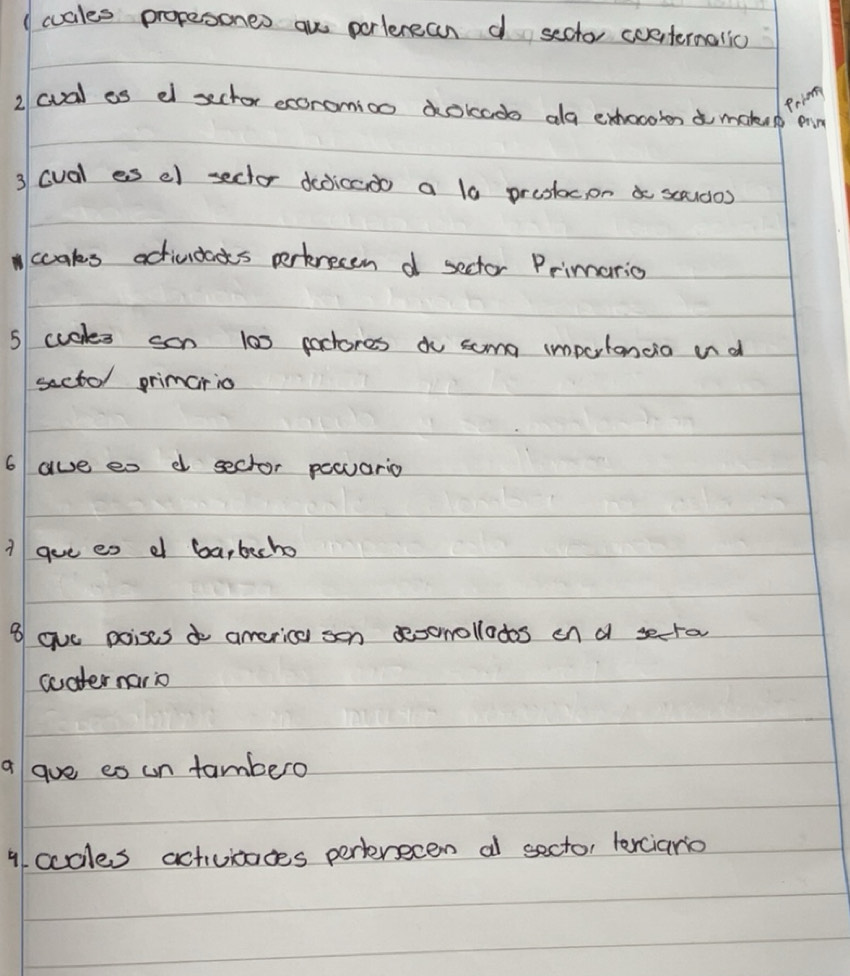 1 cuales propesones que perlenecen al sector cuerternario
2 cual es el sector economico dedicado ala extracción de materia prima
prim
3 cual es el sector dedicado a la prestacion de servicios
cuales actividades pertenecen al sector Primario
5 cuales son los factores de suma importancia en el
sector primario
6 que es el sector pecuario
7 que es el barbecho
8 que paises de america son desarrollados en el sector
cuaternario
9 que es un tambero
4. cuales actividades pertenecen al sector terciario